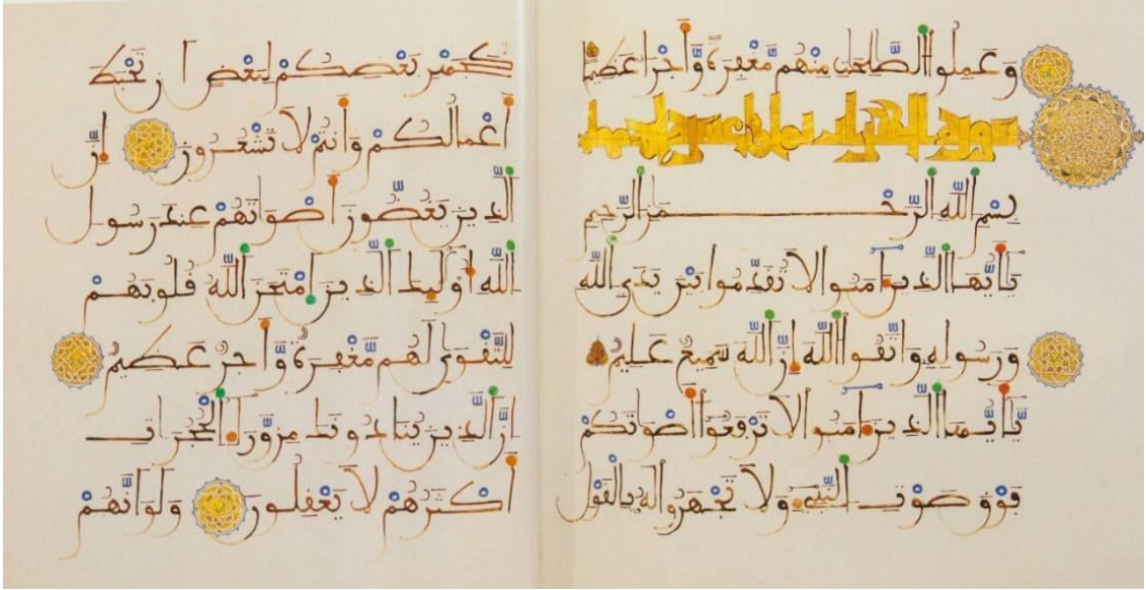 وَعَمِلُوا الصَّالِحَاتِ مِنْهُم مَّغْفِرَةً وَّأَجْرًا عَظِيمًا
سورة الحجرات
بِسْمِ اللَّهِ الرَّحْمَنِ الرَّحِيمِ
يَا أَيُّهَا الَّذِينَ ءَامَنُوا لَا تُقَدِّمُوا بَيْنَ يَدَيِ اللَّهِ
وَرَسُولِهِ وَاتَّقُوا اللَّهَ إِنَّ اللَّهَ سَمِيعٌ عَلِيمٌ
يَا أَيُّهَا الَّذِينَ ءَامَنُوا لَا تَرْفَعُوا أَصْوَاتَكُمْ
فَوْقَ صَوْتِ النَّبِيءِ وَلَا تَجْهَرُوا لَهُ بِالْقَوْلِ
كَجَهْرِ بَعْضِكُمْ لِبَعْضٍ أَن تَحْبَطَ
أَعْمَالُكُمْ وَأَنتُمْ لَا تَشْعُرُونَ إِنَّ
الَّذِينَ يَغُضُّونَ أَصْوَاتَهُمْ عِندَ رَسُولِ
اللَّهِ أُوْلَئِكَ الَّذِينَ امْتَحَنَ اللَّهُ قُلُوبَهُمْ
لِلتَّقْوَى لَهُم مَّغْفِرَةٌ وَّأَجْرٌ عَظِيمٌ
إِنَّ الَّذِينَ يُنَادُونَكَ مِن وَّرَاءِ الْحُجُرَاتِ
أَكْثَرُهُمْ لَا يَعْقِلُونَ وَلَوْ أَنَّهُمْ